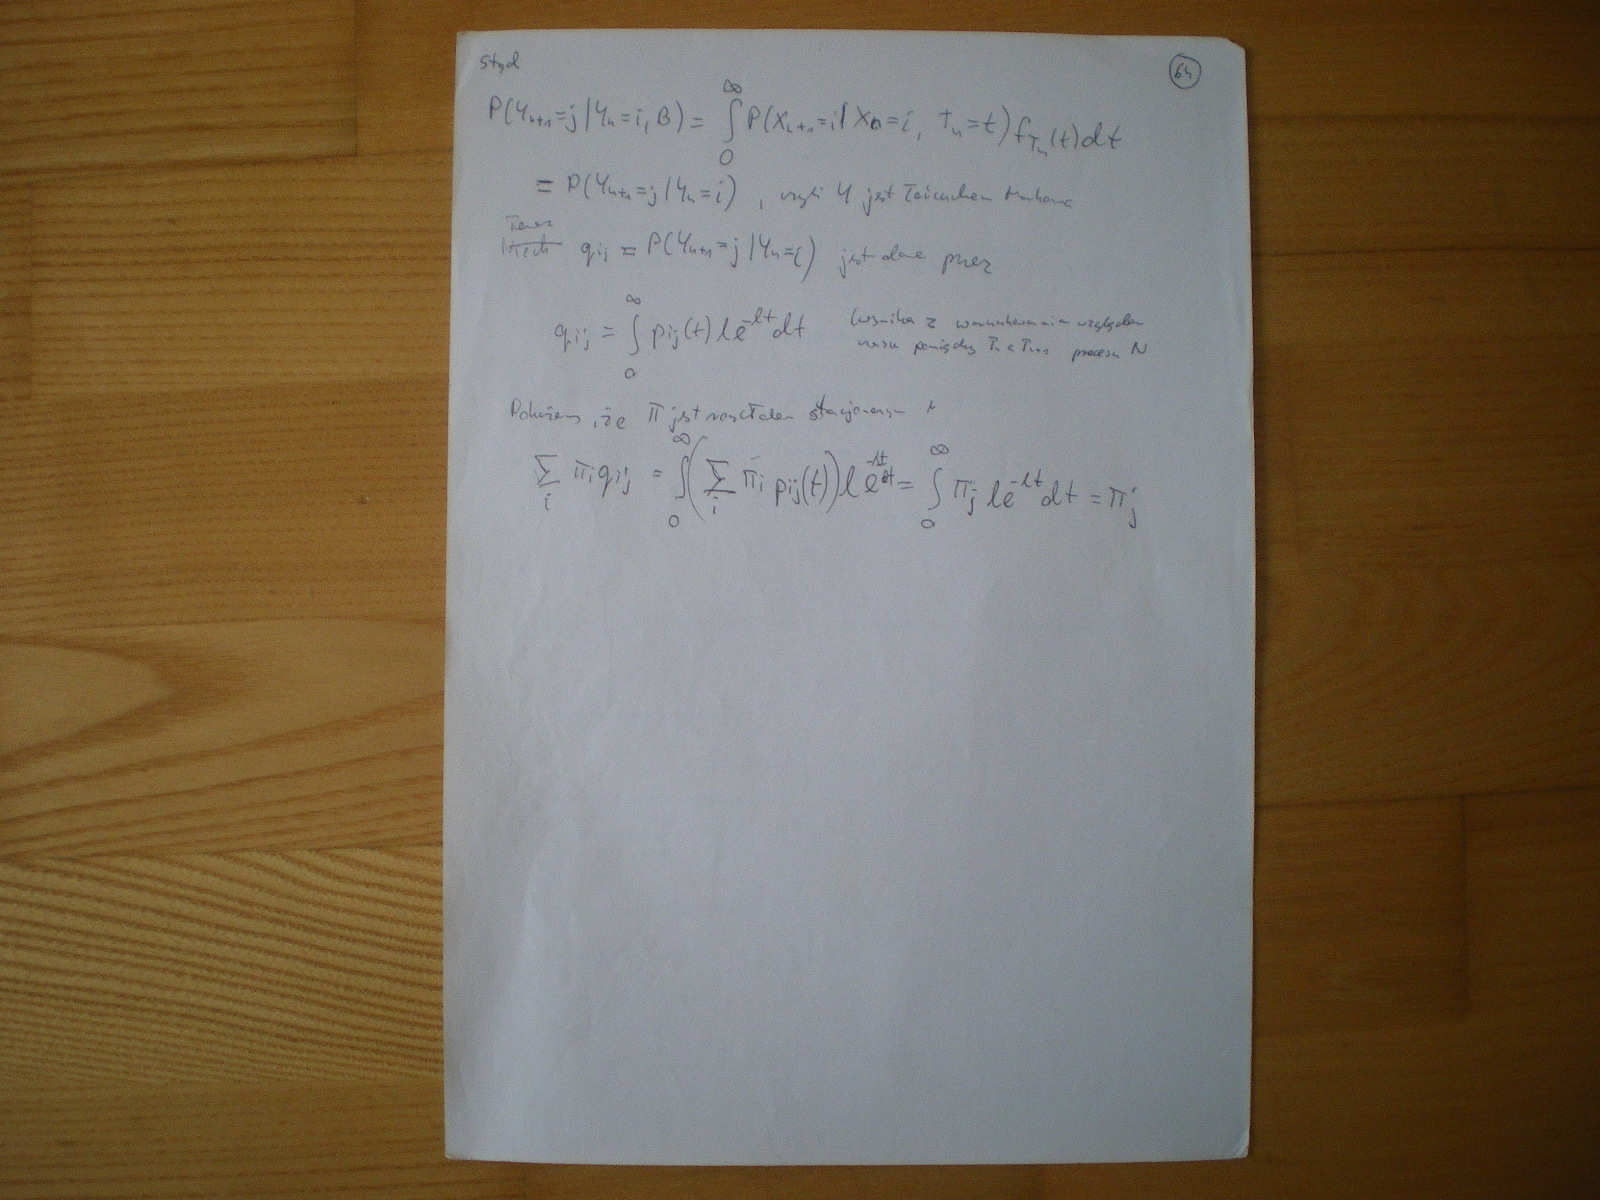 Stąd
64
P(Y_{n+1}=j|Y_n=i,B) = ∫_0^∞ P(X_{n+1}=i|X_n=i, T_n=t) f_{T_n}(t)dt
= P(Y_{n+1}=j|Y_n=i), czyli Y jest łańcuchem Markowa
Teraz
q_{ij} = P(Y_{n+1}=j|Y_n=i) jest dane przez
q_{ij} = ∫_0^∞ p_{ij}(t) l e^{-lt} dt wynika z warunkowania względem
czasu pomiędzy T_n a T_{n+1} procesu N
Pokażemy, że π jest rozkładem stacjonarnym
∑_i π_i q_{ij} = ∫_0^∞ (∑_i π_i p_{ij}(t)) l e^{-lt} dt = ∫_0^∞ π_j l e^{-lt} dt = π_j